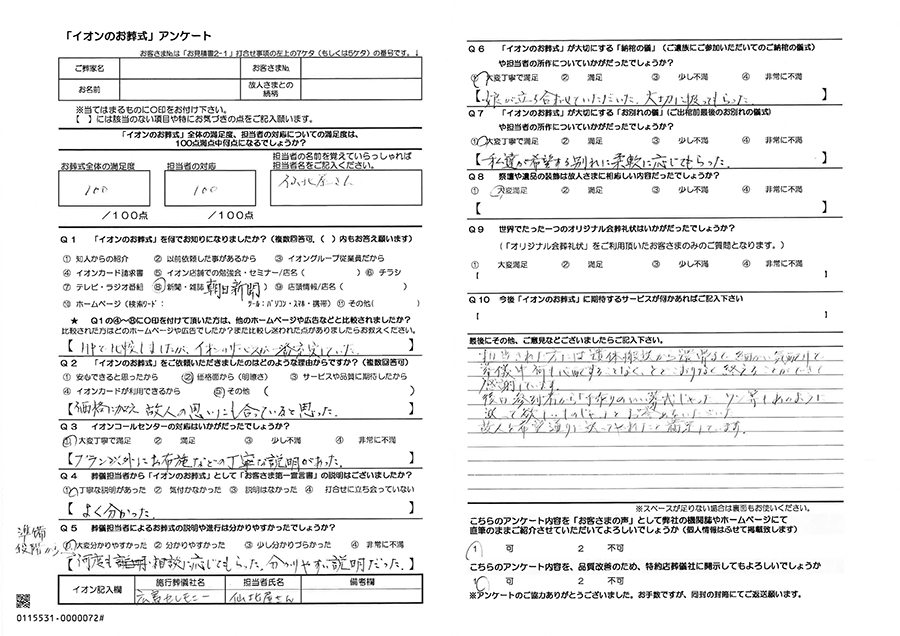 「イオンのお葬式」アンケート
お客さま№は「お見積書2-1」打合せ事項の左上の7ケタ（もしくは5ケタ）の番号です。↓
ご葬家名
お客さま№
お名前
故人さまとの続柄
※当てはまるものに○印をお付け下さい。
【　】には該当のない項目や特にお気づきの点をご記入願います。
「イオンのお葬式」全体の満足度、担当者の対応についての満足度は、
100点満点中何点になるでしょうか？
お葬式全体の満足度
担当者の対応
担当者の名前を覚えていらっしゃれば
担当者名をご記入ください。
100
100
仙北屋さん
／100点
／100点
Q1 「イオンのお葬式」を何でお知りになりましたか？（複数回答可、（ ）内もお答え願います）
① 知人からの紹介 ② 以前依頼した事があるから ③ イオングループ従業員だから
④ イオンカード請求書 ⑤ イオン店舗での勉強会・セミナー/店名（ ） ⑥ チラシ
⑦ テレビ・ラジオ番組 ⑧ 新聞・雑誌（朝日新聞） ⑨ 店頭情報/店名（ ）
⑩ ホームページ（検索ワード： ツール：パソコン・スマホ・携帯） ⑪ その他（ ）
★ Q1の④～⑧に○印を付けて頂いた方は、他のホームページや広告などと比較されましたか？
比較された方はどのホームページや広告でしたか？また比較し迷われた点がありましたらお教えください。
【HPで比較しましたが、イオンのサービスが一番充実していた。】
Q2 「イオンのお葬式」をご依頼いただきましたのはどのような理由からですか？（複数回答可）
① 安心できると思ったから ② 価格面から（明瞭さ） ③ サービスや品質に期待したから
④ イオンカードが利用できるから ⑤ その他（ ）
【価格に加え故人の思いにも合っていると思った。】
Q3 イオンコールセンターの対応はいかがだったでしょうか？
① 大変丁寧で満足 ② 満足 ③ 少し不満 ④ 非常に不満
【プラン以外にお布施などの丁寧な説明があった。】
Q4 葬儀担当者から「イオンのお葬式」として「お客さま第一宣言書」の説明はございましたか？
① 丁寧な説明があった ② 気付かなかった ③ 説明はなかった ④ 打合せに立ち会っていない
【よく分かった。】
Q5 葬儀担当者によるお葬式の説明や進行は分かりやすかったでしょうか？
準備段階から
① 大変分かりやすかった ② 分かりやすかった ③ 少し分かりづらかった ④ 非常に不満
【何度も相談に応じてもらった。分かりやすい説明だった。】
イオン記入欄
施行葬儀社名
担当者氏名
備考欄
広島セレモニー
仙北屋さん
0115531-0000072#
Q6 「イオンのお葬式」が大切にする「納棺の儀」（ご遺族にご参加いただいてのご納棺の儀式）
や担当者の所作についていかがだったでしょうか？
① 大変丁寧で満足 ② 満足 ③ 少し不満 ④ 非常に不満
【娘が立ち合わせていただいた。大切に扱ってもらった。】
Q7 「イオンのお葬式」が大切にする「お別れの儀」（ご出棺前最後のお別れの儀式）
や担当者の所作についていかがだったでしょうか？
① 大変丁寧で満足 ② 満足 ③ 少し不満 ④ 非常に不満
【私達が希望する別れに柔軟に応じてもらった。】
Q8 祭壇や遺品の装飾は故人さまに相応しい内容だったでしょうか？
① 大変満足 ② 満足 ③ 少し不満 ④ 非常に不満
【 】
Q9 世界でたった一つのオリジナル会葬礼状はいかがだったでしょうか？
（「オリジナル会葬礼状」をご利用頂いたお客さまのみのご質問となります。）
① 大変満足 ② 満足 ③ 少し不満 ④ 非常に不満
【 】
Q10 今後「イオンのお葬式」に期待するサービスが何かあればご記入下さい
【 】
最後にその他、ご意見などございましたらご記入下さい。
担当された方には遺体搬送から
葬儀中何も心配することなく、とどこおりなく終えることができて
感謝しています。
後日参列者から「手作りのいい葬式じゃった
送って欲しいものじゃ」とお
故人を希望通りに送ってやれたと満足しています。
※スペースが足りない場合は裏面もお使いください。
こちらのアンケート内容を「お客さまの声」として弊社の機関誌やホームページにて
直筆のままご紹介させていただいてよろしいでしょうか（個人情報はふせて掲載致します）
1 可 2 不可
こちらのアンケート内容を、品質改善のため、特約店葬儀社に開示してもよろしいでしょうか
1 可 2 不可
※アンケートのご協力ありがとうございました。お手数ですが、同封の封筒にてご返送願います。